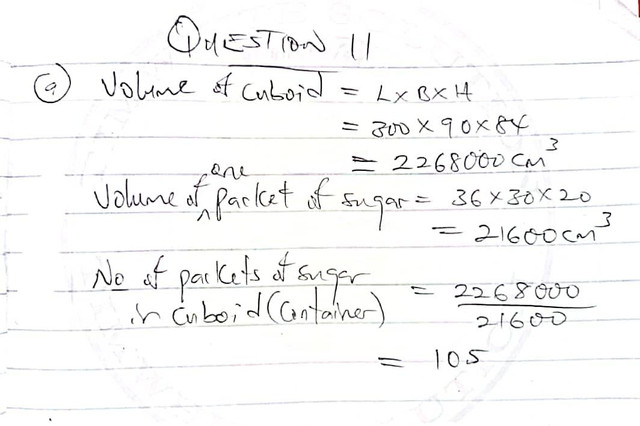 QUESTION 11
(a) Volume of cuboid = L×B×H
= 300×90×84
= 2268000cm³
Volume of one packet of sugar = 36×30×20
= 21600cm³
No of packets of sugar
in cuboid (Container) = 2268000/21600
= 105